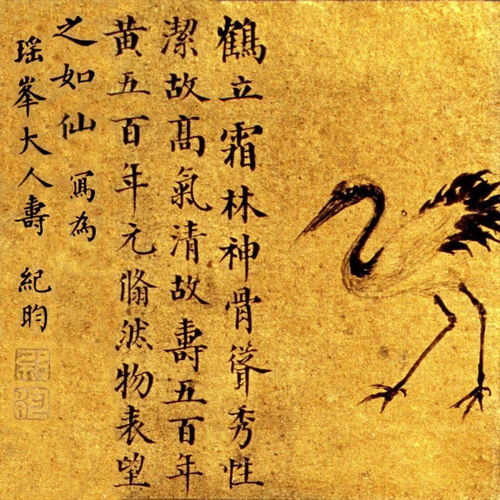 鶴立霜林神骨聳秀性
潔故高氣清故壽五百年
黃五百年元翛然物表望
之如仙寫為
瑶峯大人壽 紀昀